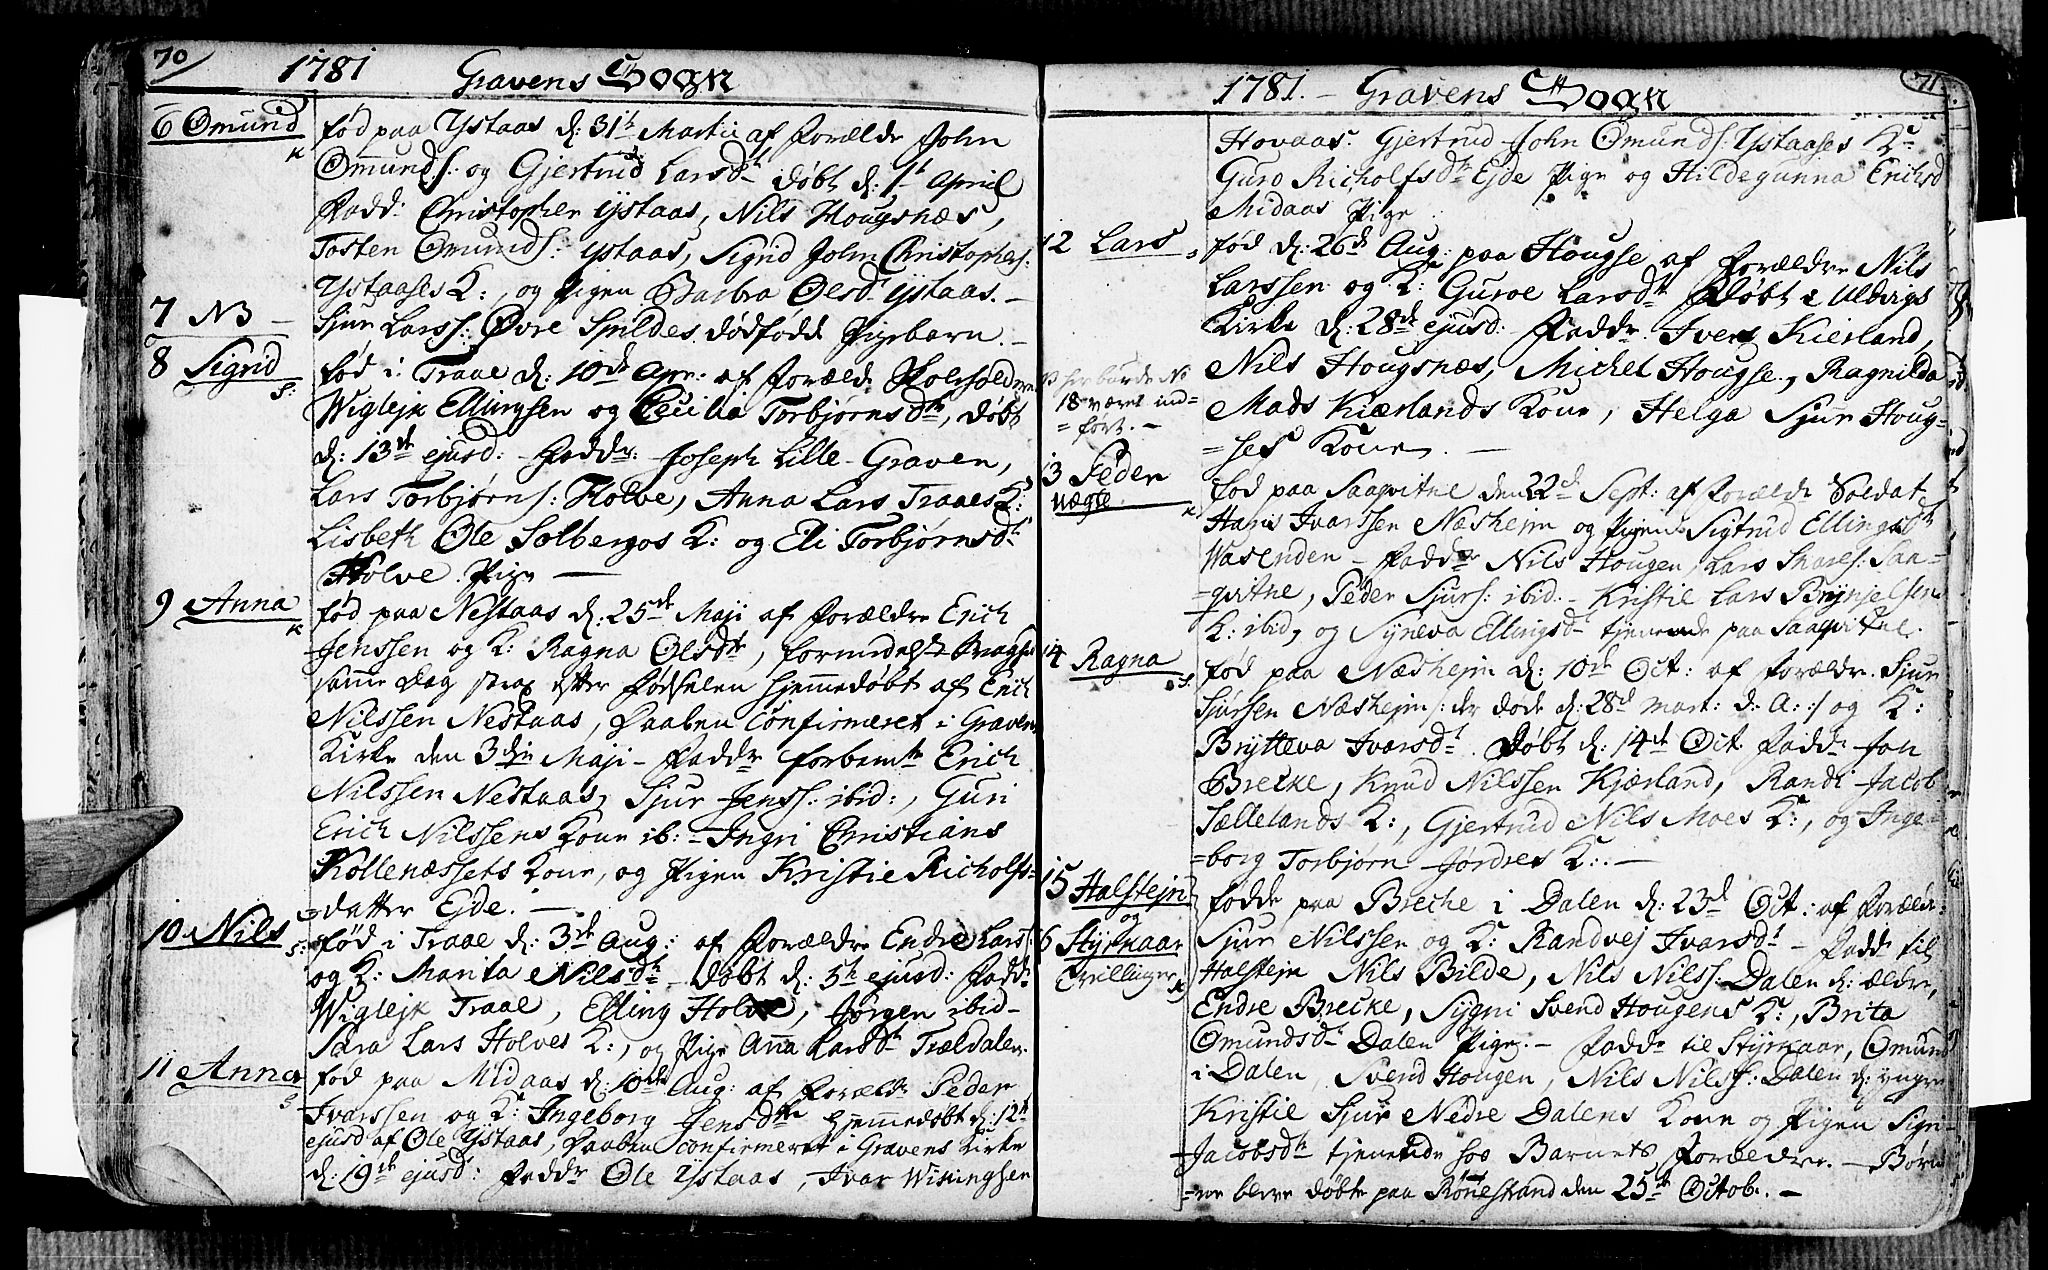 70
1781 Gravens Sogn
6 Omund
K
fød paa Ystaas d: 31t Martii af Forælde John
Omunds: og Gjertrud Larsdt døbt d: 1t April
Fadd: Christopher Ystaas, Nils Hougsnæs,
Tosten Omunds: Ystaas, Sigrid John Christophers:
Ystaases K:, og Pigen Barbra Olsd Ystaas. –
7 NB –
Sjur Larss: Øvre Spildes dødfødde Pigebarn. –
8 Sigrid
S:
fød i Traae d: 10de Apr: af Forælde
Wiglejk Ellingsen og Cecilia Torbjørnsdtr, døbt
d: 13de ejusd: – Faddr: – Joseph Lille-Graven,
Lars Torbjørns: Holve, Anna Lars Traaes K:
Lisbeth Ole Solbergos K: og Eli Torbjørnsdt
Holve Pige –
9 Anna
K
fød paa Nestaas d: 25de Maji af Forældre Erich
Jenssen og K: Ragna Olsdtr, formedelst
samme Dag strax efter Fødselen hjemmedøbt af Erich
Nilssen Nestaas, Daaben Confirmeret i Gravens
Kirke den 3die Maji – Faddr forbemte Erich
Nilssen Nestaas, Sjur Jenss: ibid:, Guri
Erich Nilssens Kone ib: – Ingri Christians
Kollenæssets Kone, og Pigen Kristie Richolfs=
=datter Ejde. –
10 Nils
S:
fød i Traae d: 3de Aug: af Forældre Endre Larss:
og K: Marita Nilsdt – døbt d: 5t ejusd: Fadd:
Wiglejk Traae, Elling Holve, Jørgen ibid –
Sara Lars Holves K:, og Pige Anna Larsdt Trældalen.
11 Anna
S
fød paa Midaas d: 10de Aug: af Foræld: Peder
Ivarssen og K: Ingeborg Jensdtr hjemmedøbt d: 12t
ejusd af Ole Ystaas, Daaben confirmeret i Gravens Kirke
d: 19de ejusd: Faddr Ole Ystaas, Ivar Wikingsen
71
1781. – Gravens Sogn
Hovaas. Gjertrud John Omunds: Ystaases K:
Guro Richolfsdtr Ejde Pige og Hildegunna Erichsd
Midaas Pige.
12 Lars
S
fød d: 26de Aug: paa Hougse af Forældre Nils
Larssen og K: Guroe Larsdtr Døbt i Uldvigs
Kirke d: 28de ejusd: Faddr. Iver Kierland,
Nils Hougsnæs, Michel Hougse, Ragnilda
Mads Kiærlands Kone, Helga Sjur Houg=
=ses Kone. –
her burde No
18 været ind=
=ført. –
13 Peder
uægte.
K
fød paa Saaqvitne den 22de Sept: af Forælde Soldat
Hans Ivarssen Næshejm og Pigen Sigtrud Ellingsdtr
Wasenden – Faddr Nils Hougen, Lars Saa=
=qvitne, Peder Sjurs: ibid. – Kristie Lars Brynjelsen
K: ibid, og Syneva Ellingsd tjenende paa Saaqvitne.
14 Ragna
S:
fød paa Næshejm d: 10de Oct: af Forældr. Sjur
Sjursen Næshejm /: der døde d: 28d Mart: d: A: :/ og K:
Brytteva Ivarsdt. Døbt d: 14de Oct. Faddr Jon
Brecke, Knud Nilssen Kjærland, Randi Jacob
Sællelands K:, Gjertrud Nils Moes K:, og Inge=
=borg Torbjørn Jørdres K:. –
15 Halstejn
og
6 Styrkaar
Tvillinger
K
fødde paa Breche i Dalen d: 23d Oct: af Forældr:
Sjur Nilssen og K: Randvej Ivarsdt – Faddr til
Halstejn Nils Bilde, Nils Nilss: Dalen d: ældre,
Endre Brecke, Sygni Svend Hougens K:, Brita
Omundsdt Dalen Pige. – Faddr til Styrkaar, Omund
i Dalen, Svend Hougen, Nils Nilss: Dalen d: yngre
Kristie Sjur Nedre Dalens Kone og Pigen Sigri
Jacobsdtr tjenende hos Barnets Forældre. – Børn
=ne bleve døbte paa Rønestrand den 25de Octob. –